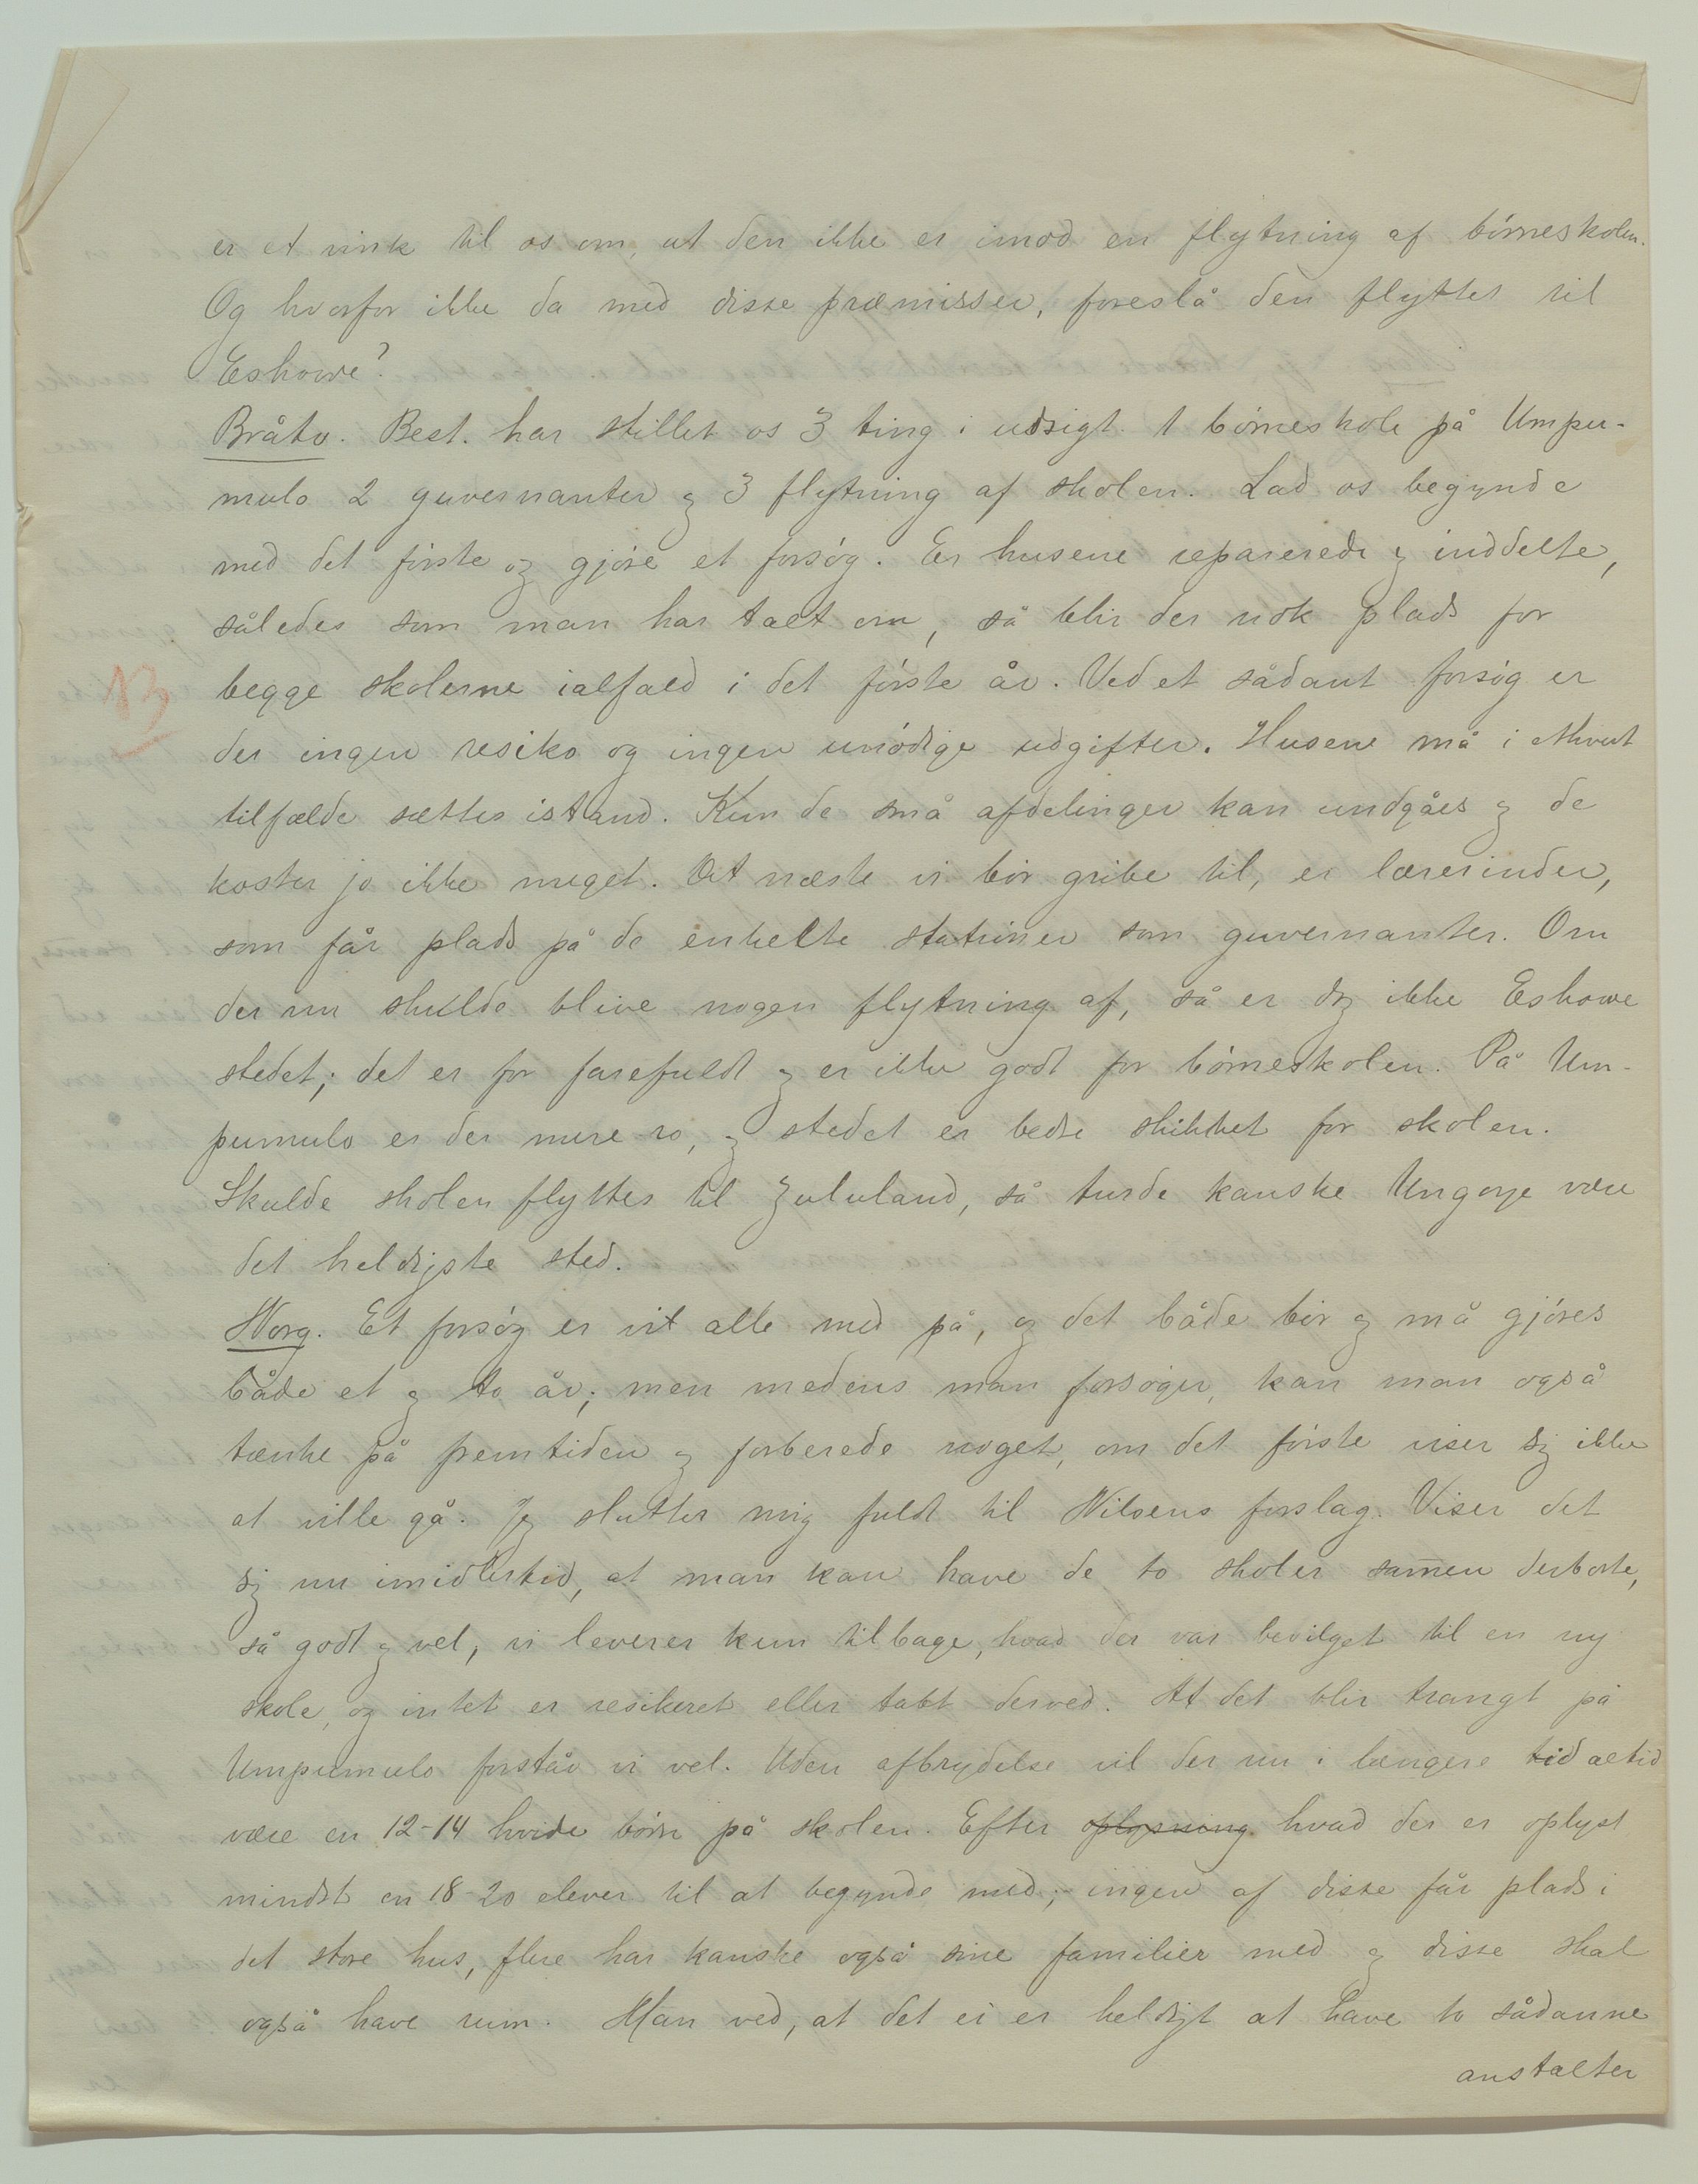 er et vink til os om, at den ikke er imod en flytning af børneskolen.
Og hvorfor ikke da med disse præmisser, foreslå den flyttet til
Eshowe?
Bråtv. Best. har stillet os 3 ting i udsigt. 1 børneskole på Umpu-
mulo 2 guvernanter og 3 flytning af skolen. Lad os begynde
med det første og gjøre et forsøg. Er husene reparerede og inddelte,
således som man har talt om, så blir der nok plads for
begge skolerne ialfald i det første år. Ved et sådant forsøg er
13
der ingen resiko og ingen unødige udgifter. Husene må i ethvert
tilfælde sættes istand. Kun de små afdelinger kan undgåes og de
koster jo ikke meget. Det næste vi bør gribe til, er lærerinder,
som får plads på de enkelte stationer som guvernanter. Om
der nu skulde blive nogen flytning af, så er dog ikke Eshowe
stedet; det er for farefuldt og er ikke godt for børneskolen. På Um-
pumulo er der mere ro, og stedet er bedre skikket for skolen.
Skulde skolen flyttes til Zululand, så turde kanske Ungoye være
det heldigste sted.
Norg. Et forsøg er vi alle med på, og det både bør og må gjøres
både et og to år; men medens man forsøger, kan man også
tænke på fremtiden og forberede noget, om det første viser sig ikke
at ville gå. Jeg slutter mig fuldt til Nilsens forslag. Viser det
sig nu imidlertid, at man kan have de to skoler sam̄en derborte,
så godt og vel, vi leverer kun tilbage, hvad der var bevilget til en ny
skole, og intet er resikeret eller tabt derved. At det blir trangt på
Umpumulo forstår vi vel. Uden afbrydelse vil der nu i længere tid altid
være en 12-14 hvide børn på skolen. Efter oplysning hvad der er oplyst
mindst en 18-20 elever til at begynde med; ingen af disse får plads i
det store hus, flere har kanske også sine familier med og disse skal
også have rum. Man ved, at det ei er heldigt at have to sådanne
anstalter